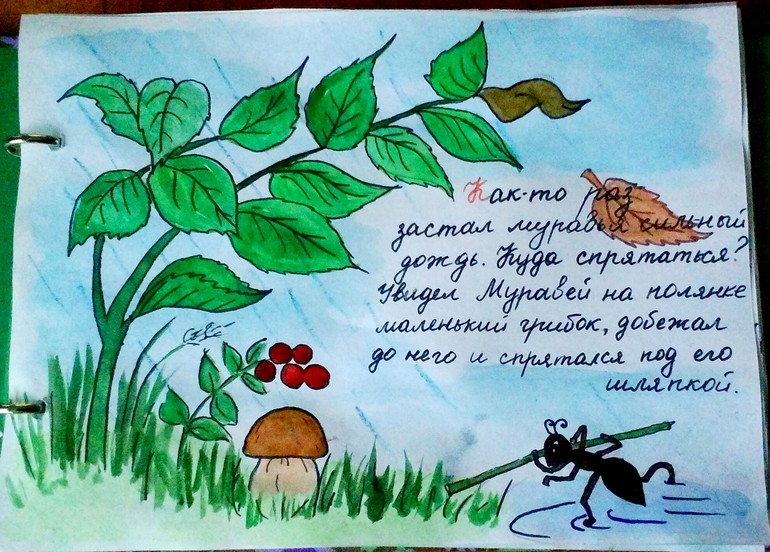 Как-то раз
застал муравья сильный
дождь. Куда спрятаться?
Увидел Муравей на полянке
маленький грибок, добежал
до него и спрятался под его
шляпкой.